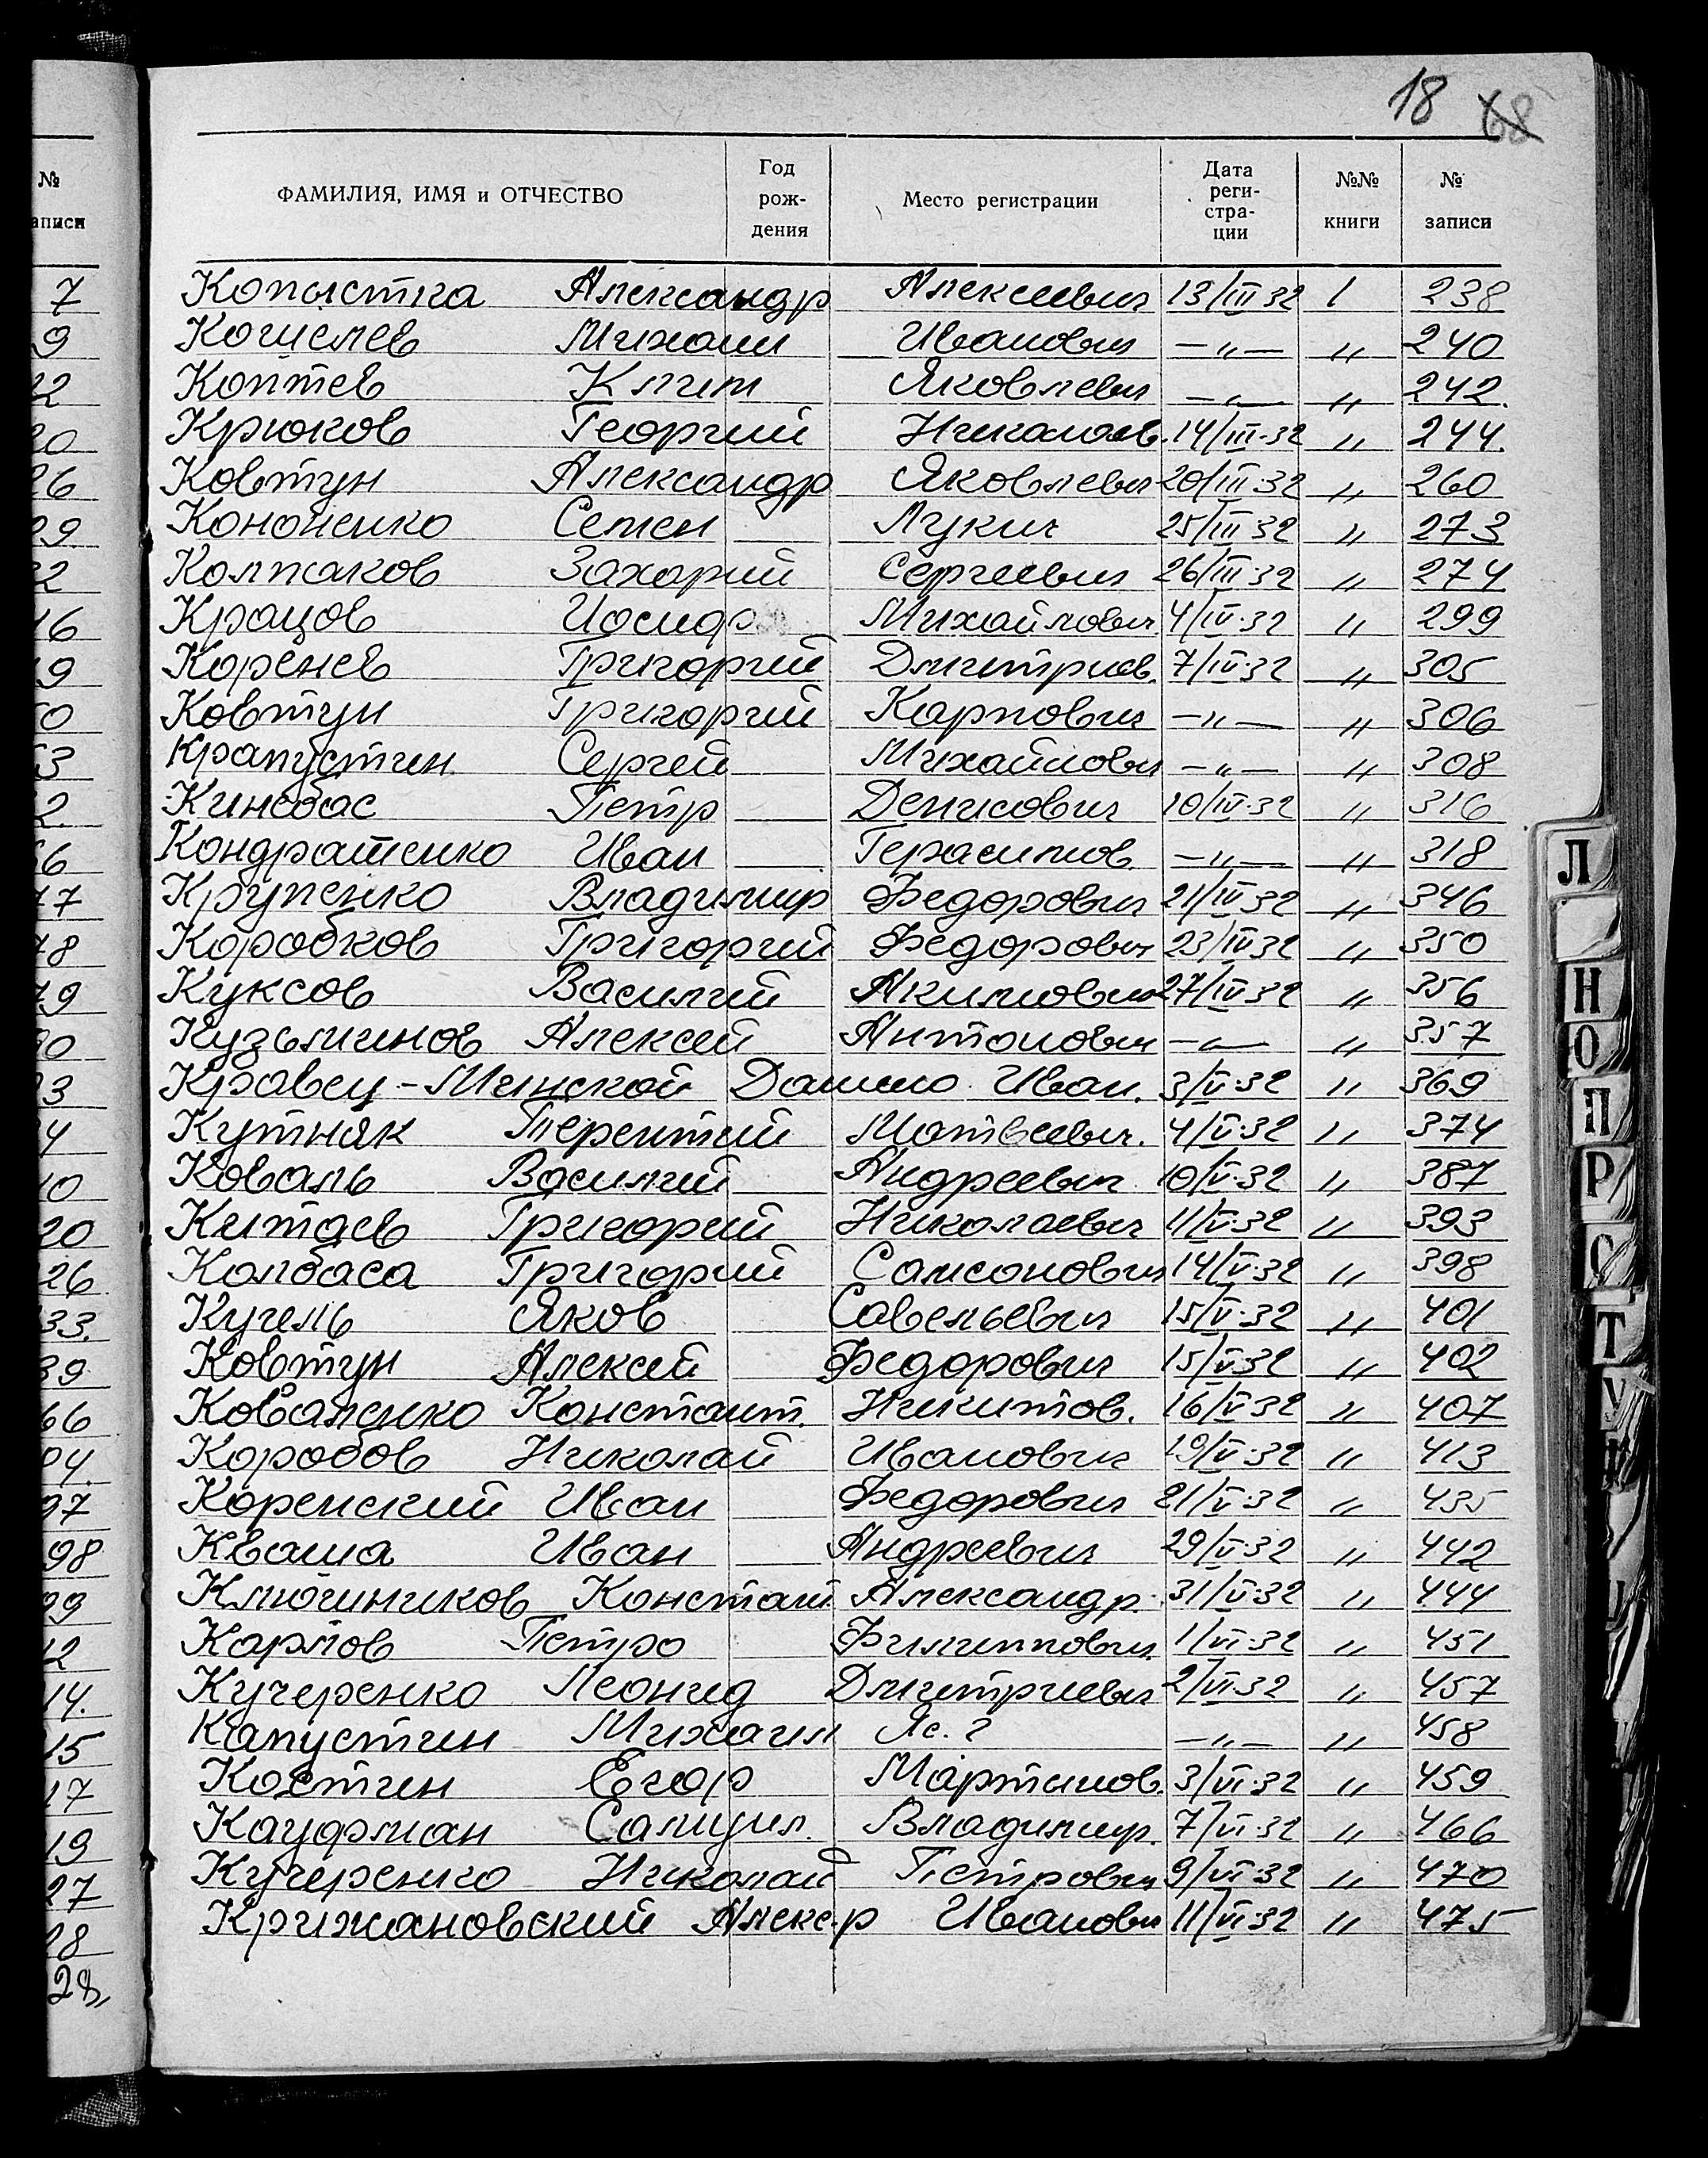 18 68
№ записи
ФАМИЛИЯ, ИМЯ и ОТЧЕСТВО | Год рождения | Место регистрации | Дата регистрации | №№ книги | № записи
7 Копыстка Александр Алексеевич 13/III 32 1 238
9 Кошелев Михаил Иванович —„— „ 240
22 Коптев Клим Яковлевич —„— „ 242.
20 Крюков Георгий Николаев. 14/III-32 „ 244.
26 Ковтун Александр Яковлевич 20/III 32 „ 260
29 Кононенко Семен Лукич 25/III 32 „ 273
32 Колпаков Захарий Сергеевич 26/III-32 „ 274
16 Крацов Иосиф Михайлович 4/IV-32 „ 299
19 Коренев Григорий Дмитриев. 7/IV-32 „ 305
50 Ковтун Григорий Карпович —„— „ 306
53 Крапустин Сергей Михайлович —„— „ 308
2. Кинсбас Петр Денисович 10/IV-32 „ 316
66 Кондратенко Иван Герасимов. —„— „ 318
77 Крупенко Владимир Федорович 21/IV 32 „ 346
78 Коробков Григорий Федорович 23/IV 32 „ 350
79 Куксов Василий Акимович 27/IV 32 „ 356
90 Кузьминов Алексей Антонович —„— „ 357
93 Кравец-Минской Данило Иван. 3/V-32 „ 369
4 Кутняк Терентий Матвеевич. 4/V-32 „ 374
10 Коваль Василий Андреевич 10/V-32 „ 387
20 Китаев Григорий Николаевич 11/V-32 „ 393
26 Колбаса Григорий Самсонович 14/V-32 „ 398
33. Кугель Яков Савельевич 15/V-32 „ 401
39 Ковтун Алексей Федорович 15/V-32 „ 402
66 Коваленко Констант. Никитов. 16/V 32 „ 407
94. Коробов Николай Иванович 19/V-32 „ 413
97 Коренский Иван Федорович 21/V-32 „ 435
98 Кваша Иван Андреевич 29/V-32 „ 442
99 Ключиников Констант Александр. 31/V-32 „ 444
12 Карпов Петро Филиппович. 1/VI-32 „ 451
14. Кучеренко Леонид Дмитриевич 2/VI-32 „ 457
15 Капустин Михаил Яс. ? —„— „ 458
17 Костин Егор Мартинов. 3/VI-32 „ 459
19 Кауфман Самуил. Владимир. 7/VI-32 „ 466
27 Кучеренко Николай Петрович 9/VI-32 „ 470
28 Крижановский Алекс-р Иванович 11/VI-32 „ 475
28„
Л
Н
О
П
Р
С
Т
У